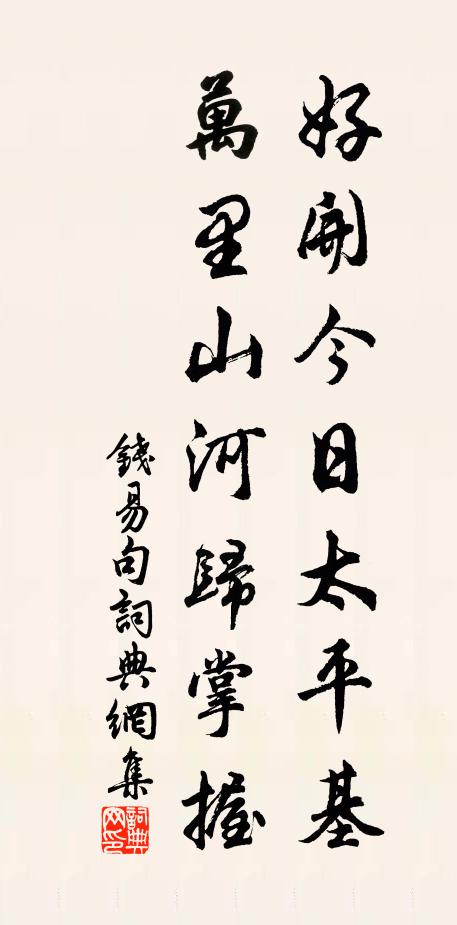 好開今日太平基
萬里山河歸掌握
錢易句詞典網集
詞典网印